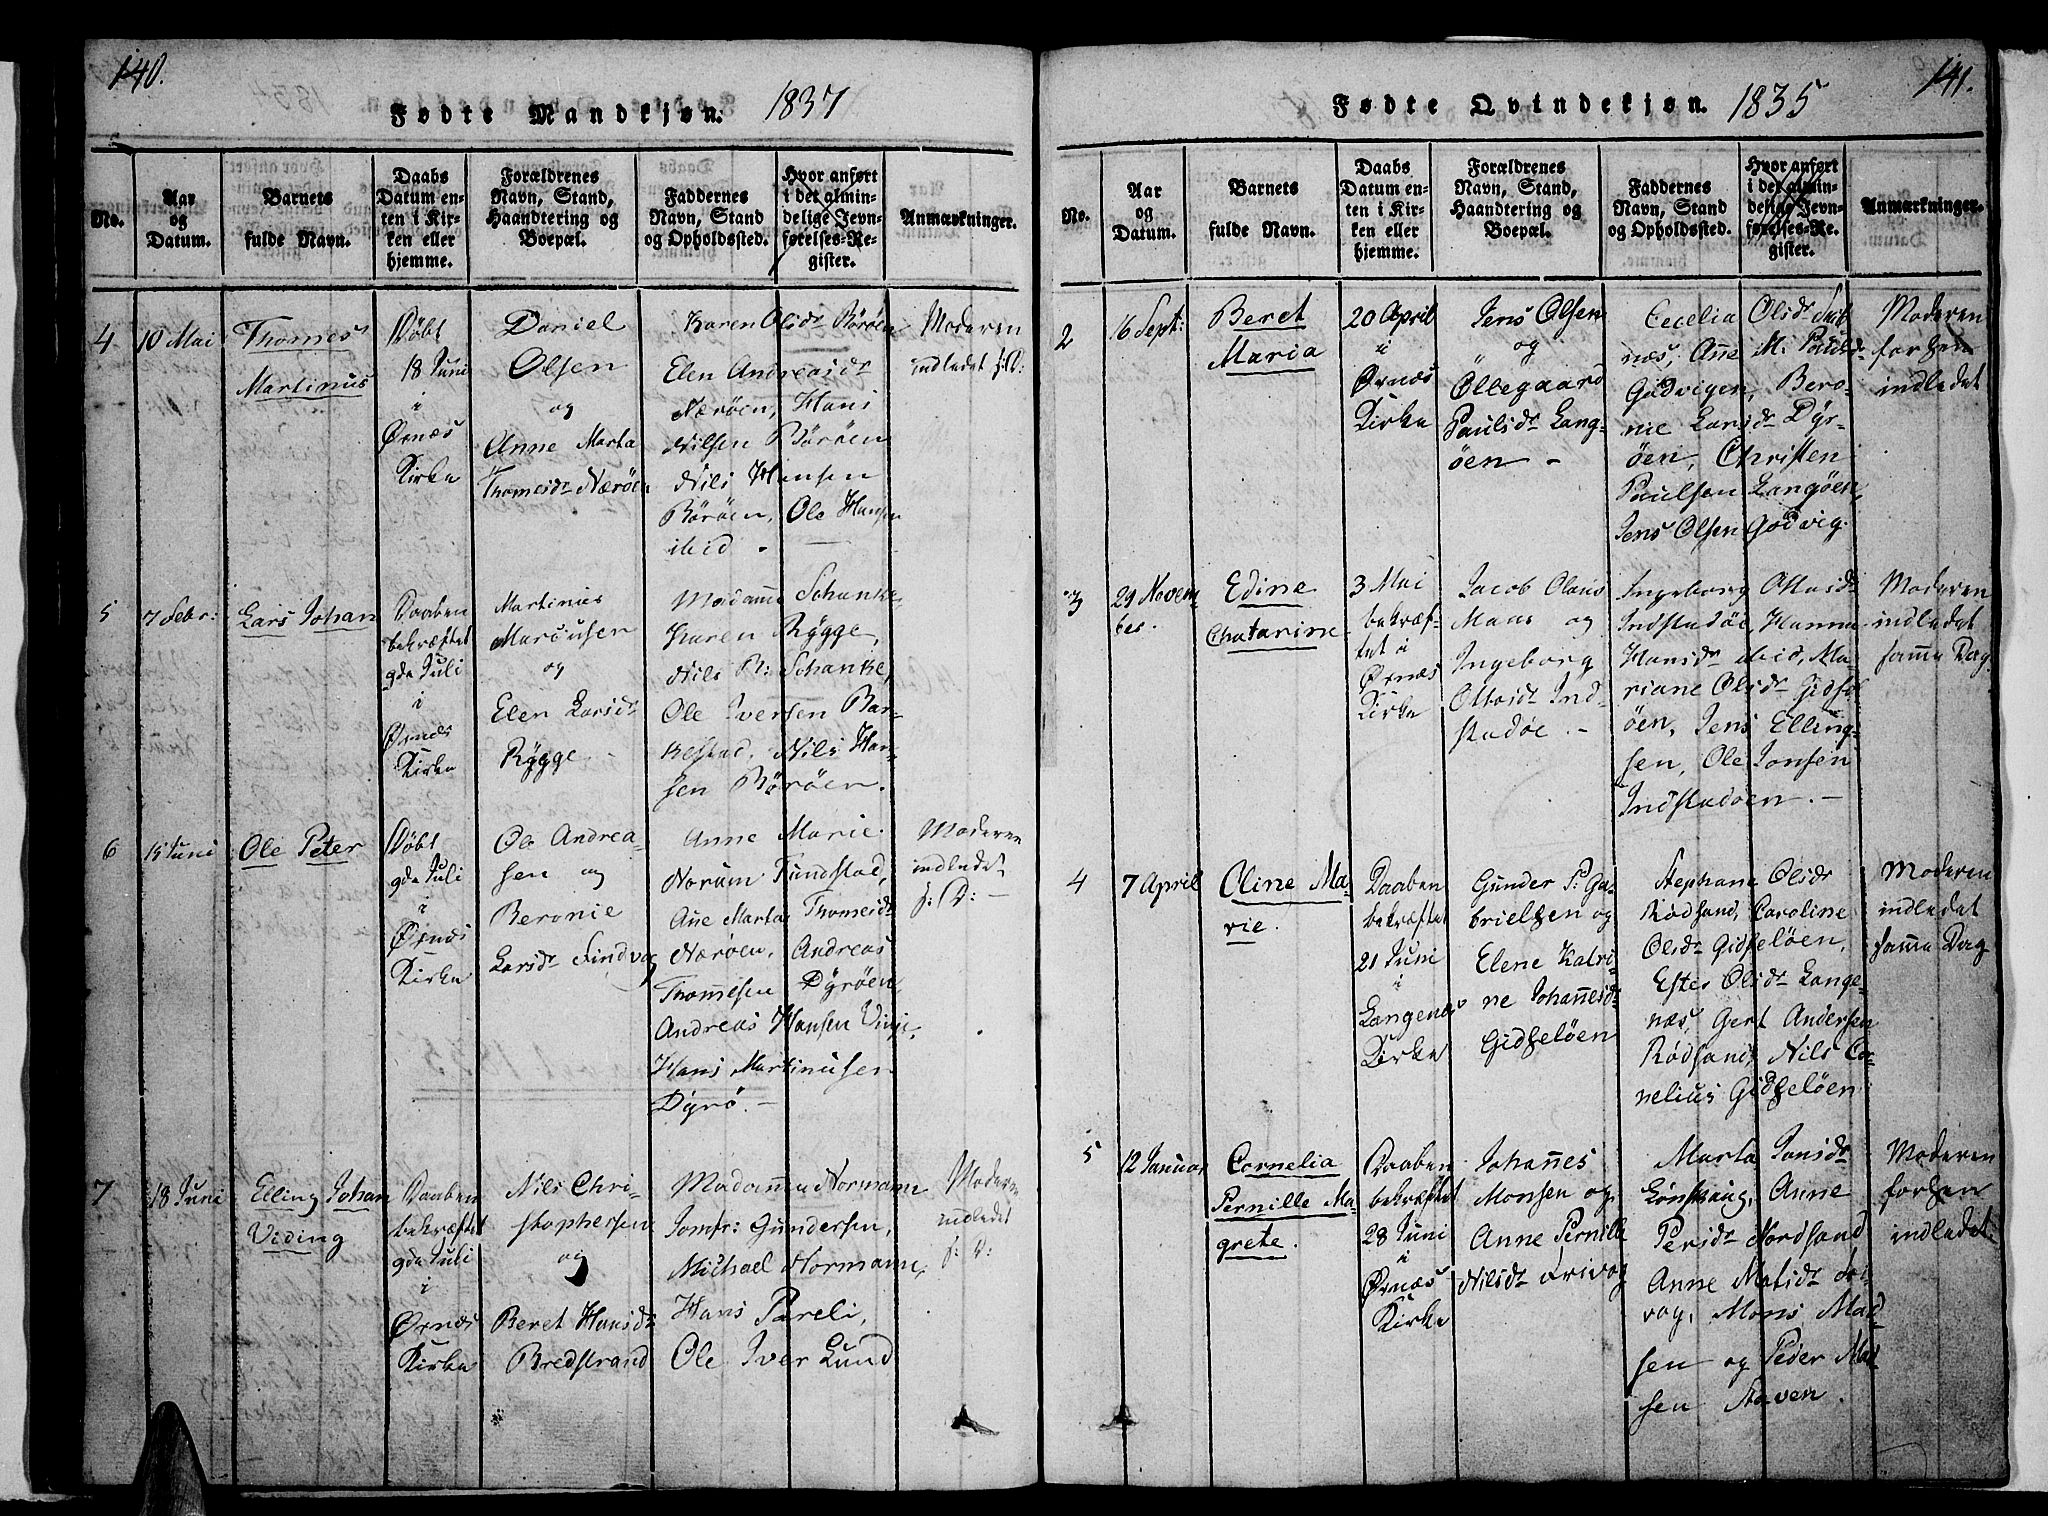 140.
Fødte Mandkjøn. 1837
No.
Aar
og
Datum.
Barnets
fulde Navn.
Daabs
Datum en-
ten i Kir-
ken eller
hjemme.
Forældrenes
Navn, Stand,
Haandtering og
Boepæl.
Faddernes
Navn, Stand
og Opholdssted.
Hvor anført
i det almin-
delige Jevn-
førelses-Re-
gister.
Anmærkninger.
4
10 Mai
Thomes
Martinus
Døbt
18 Juni
i
Ørnæs
Kirke
Daniel
Olsen
og
Anne Marta
Thomesdr Nærøen
Karen Olsdr Børøen
Elen Andreasdr
Nærøen, Hans
Nilsen Børøen
Nils Hansen
Børøen, Ole Hansen
ibid.
Moderen
indledet f: D:
5
7 Febr:
Lars Johan
Daaben
bekræftet
9da Juli
i
Ørnæs
Kirke
Martinus
Marcusen
og
Elen Larsdr
Rygge
Madame Schanke
Karen Rygge,
Nils B: Schanke,
Ole Iversen Bar-
kestad, Nils Han-
sen Børøen.
6
15 Juni
Ole Peter
Døbt
9da Juli
i
Ørnæs
Kirke
Ole Andrea-
sen og
Beronie
Larsdr Findvog
Anne Marie
Norum Tundstad,
Ane Marta Thomesdr
Nærøen, Andreas
Thomesen Dyrøen
Andreas Hansen Vinje,
Hans Martinusen
Dyrø.
Moderen
indledet
f: D:
7
18 Juni
Elling Johan
Viding
Daaben
bekræftet
9da Juli
i
Ørnæs
Kirke
Nils Chri-
stophersen
og
Beret Hansdr
Bredstrand
Madamme Normann
Jomfr: Gundersen,
Michael Normann,
Hans Pareli,
Ole Iver Lund
Moderen
indledet
f: D:
141.
Fødte Qvindekjøn. 1835
No.
Aar
og
Datum.
Barnets
fulde Navn.
Daabs
Datum en-
ten i Kir-
ken eller
hjemme.
Forældrenes
Navn, Stand,
Haandtering og
Boepæl.
Faddernes
Navn, Stand
og Opholdssted.
Hvor anført
i det almin-
delige Jevn-
førelses-Re-
gister.
Anmærkninger.
2
16 Sept:
Beret
Maria
20 April
i
Ørnæs
Kirke
Jens Olsen
og
Ollegaard
Paulsdr Lang-
øen
Cecelia Olsdr
næs, Ane M. Paulsdr
Godvigen, Bero-
nie Larsdr Dyr-
øen, Christen
Paulsen Langøen,
Jens Olsen Godvig.
Moderen
forhen
indledet
3
29 Novem-
ber.
Edine
Chatarine
3 Mai
bekræf-
tet i
Ørnæs
Kirke
Jacob Claus
Maas og
Ingeborg
Ottosdr Ind-
stadøe.
Ingeborg Ottosdr
Indstadøe, Hanna
Hansdr ibid, Ma-
riane Olsdr Gidsel-
øen, Jens Elling-
sen, Ole Jonsen
Indstadøen.
Moderen
indledet
samme Dag
4
7 April
Oline Ma-
rie.
Daaben
bekræftet
21 Juni
i
Langenæs
Kirke
Gunder P: Ga-
brielsen og
Elene Katri-
ne Johannesdr
Gidseløen
Stephana Olsdr
Rødsand, Caroline
Olsdr Gidseløen,
Ester Olsdr Lange-
næs, Gert Andersen
Rødsand, Nils Cor-
nelius Gidseløen
Moderen
indledet
samme Dag
5
12 Januar
Cornelia
Pernille Ma-
grete.
Daaben
bekræftet
28 Juni
i
Ørnæs
Kirke
Johannes
Monsen og
Anne Pernille
Nilsdr Frivog
Marta Jonsdr
Lønskaug, Anne
Persdr Nordsand
Anne Matsdr Fri-
vog, Mons Mad-
sen og Peder Mad-
sen Staven.
Moderen
forhen
indledet